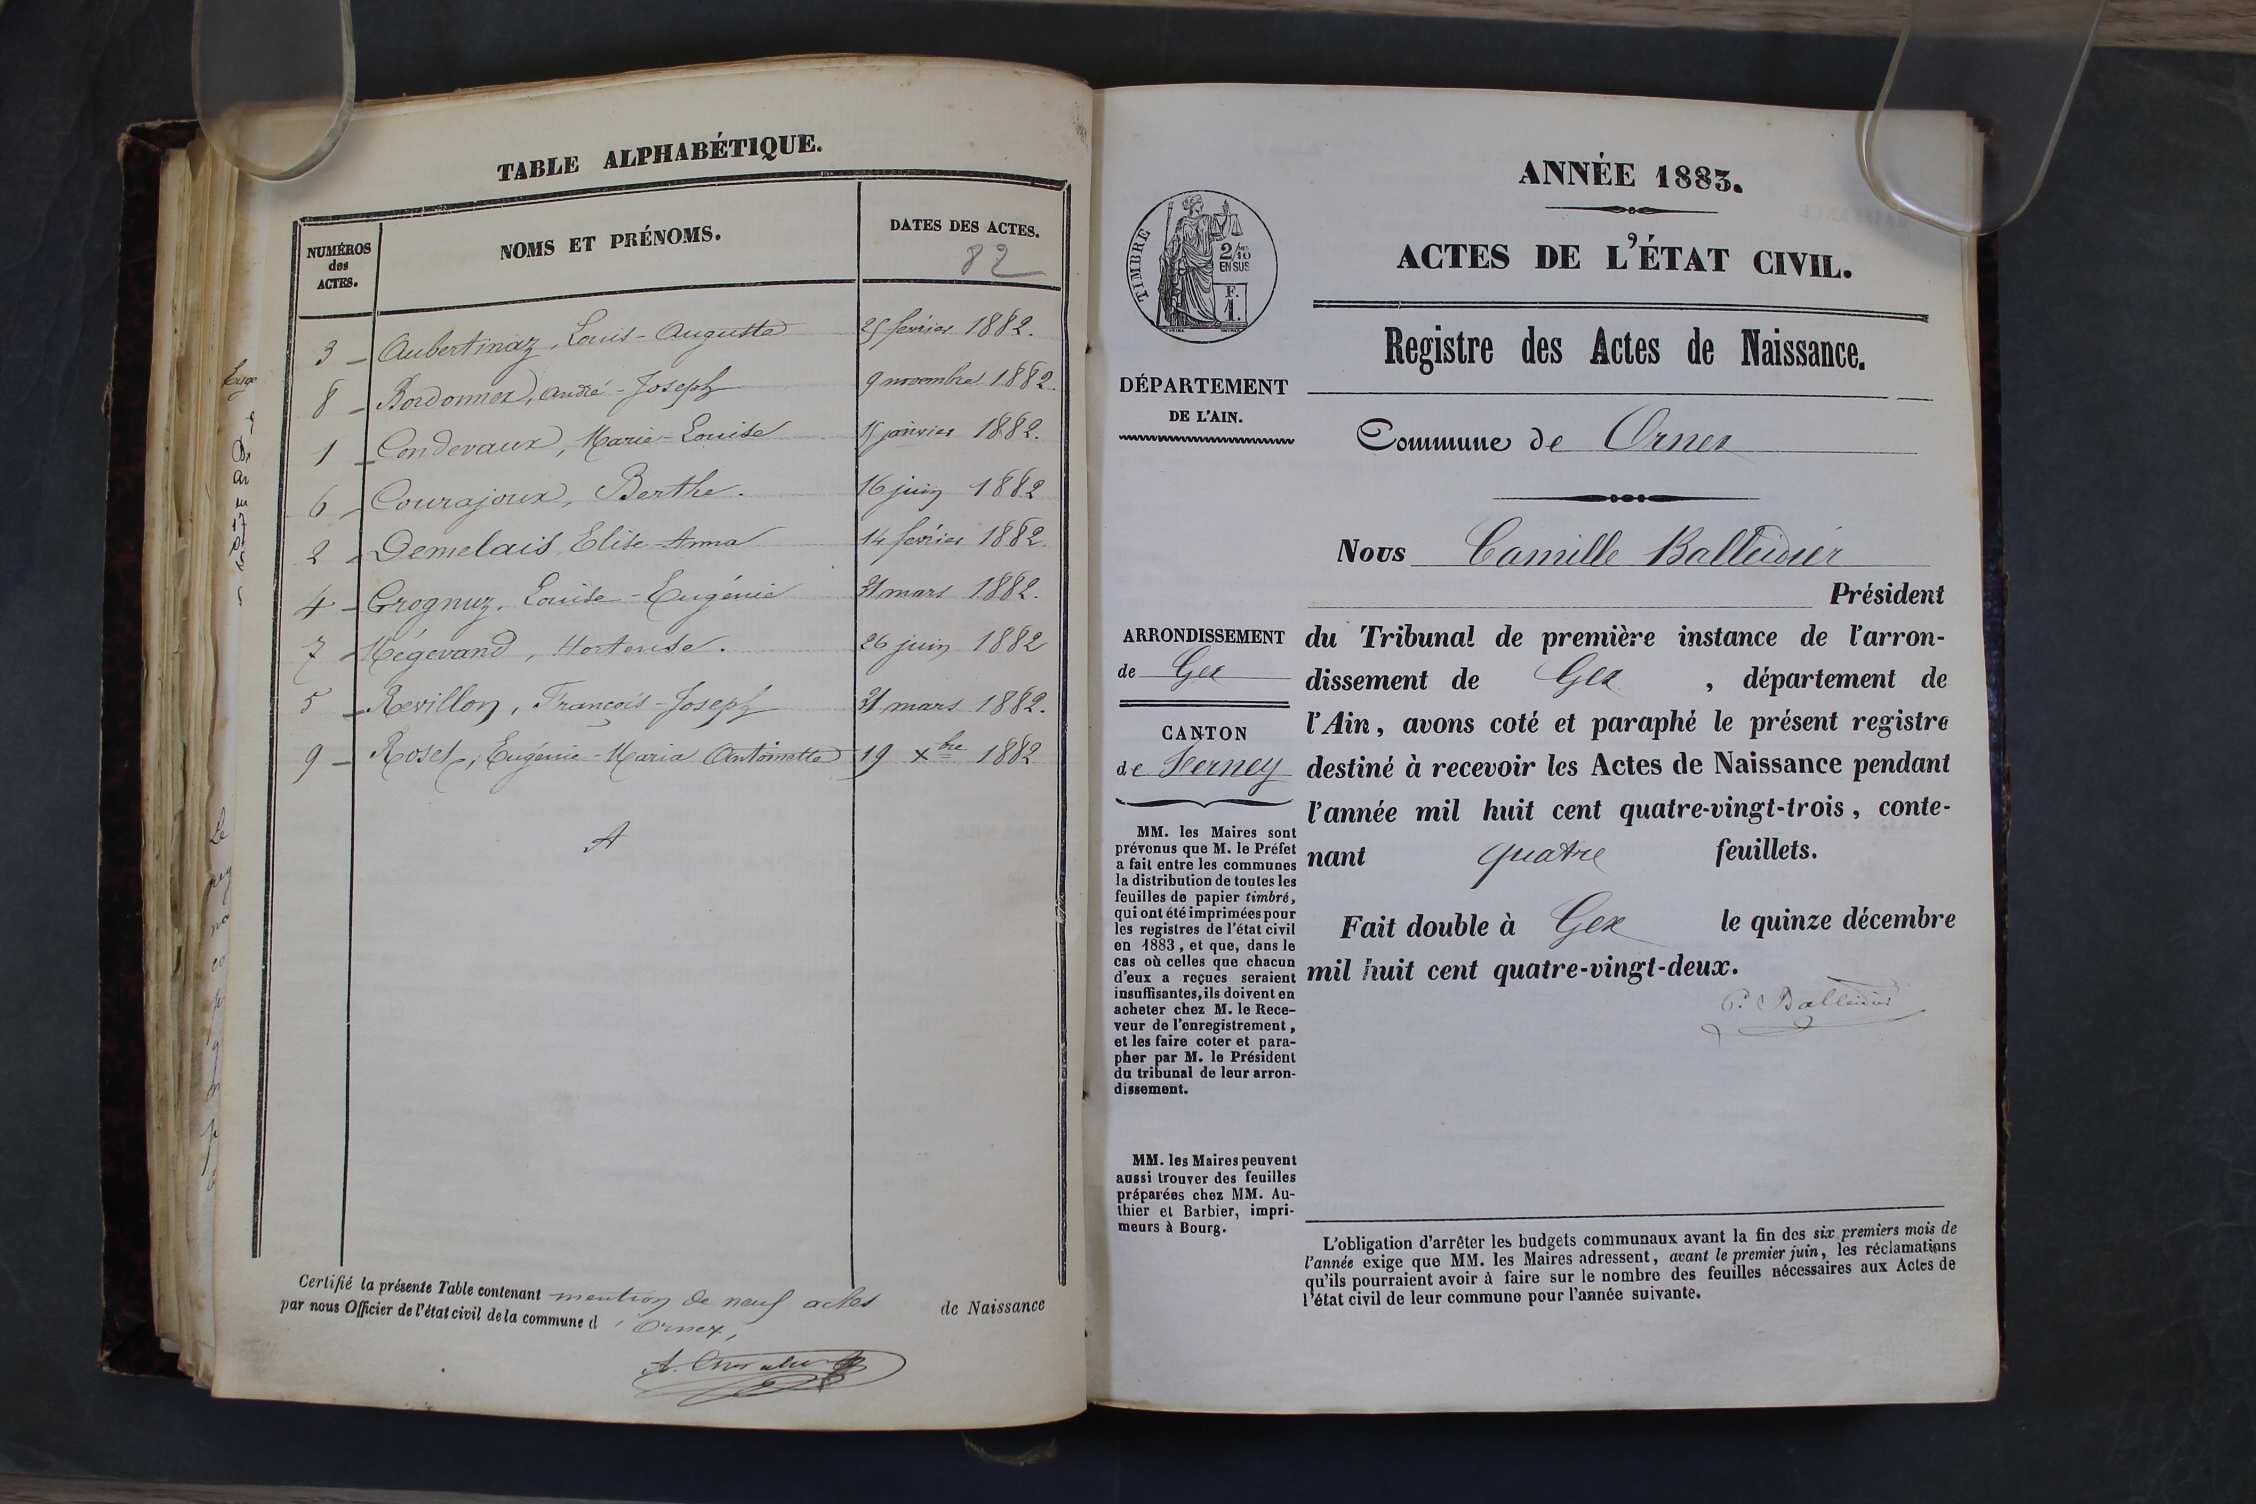 TABLE ALPHABÉTIQUE.
NUMÉROS
des
ACTES.
NOMS ET PRÉNOMS.
DATES DES ACTES.
82
3 - Aubertinaz, Louis-Auguste 25 février 1882.
8 - Bordonnex, André-Joseph 9 novembre 1882.
1 - Condevaux, Marie-Louise 15 janvier 1882.
6 - Courajoux, Berthe. 16 juin 1882
2 - Demelais, Elise-Anna 14 février 1882.
4 - Grognuz, Louise-Eugénie 31 mars 1882.
7 - Mégevand, Hortense. 26 juin 1882
5 - Revillon, François-Joseph 31 mars 1882.
9 - Roset, Eugénie-Maria Antoinette 19 Xbre 1882
Certifié la présente Table contenant mention de neuf actes de Naissance
par nous Officier de l'état civil de la commune d'Ornex,
ANNÉE 1883.
ACTES DE L'ÉTAT CIVIL.
TIMBRE
2/10
EN SUS
F.
1.
Registre des Actes de Naissance.
DÉPARTEMENT
DE L'AIN.
Commune de Ornex
Nous Camille Balleidier
Président
ARRONDISSEMENT
de Gex
CANTON
de Ferney
du Tribunal de première instance de l'arron-
dissement de Gex, département de
l'Ain, avons coté et paraphé le présent registre
destiné à recevoir les Actes de Naissance pendant
l'année mil huit cent quatre-vingt-trois, conte-
nant quatre feuillets.
Fait double à Gex le quinze décembre
mil huit cent quatre-vingt-deux.
C. Balleidier
MM. les Maires sont
prévenus que M. le Préfet
a fait entre les communes
la distribution de toutes les
feuilles de papier timbré,
qui ont été imprimées pour
les registres de l'état civil
en 1883, et que, dans le
cas où celles que chacun
d'eux a reçues seraient
insuffisantes, ils doivent en
acheter chez M. le Rece-
veur de l'enregistrement,
et les faire coter et para-
pher par M. le Président
du tribunal de leur arron-
dissement.
MM. les Maires peuvent
aussi trouver des feuilles
préparées chez MM. Au-
thier et Barbier, impri-
meurs à Bourg.
L'obligation d'arrêter les budgets communaux avant la fin des six premiers mois de
l'année exige que MM. les Maires adressent, avant le premier juin, les réclamations
qu'ils pourraient avoir à faire sur le nombre des feuilles nécessaires aux Actes de
l'état civil de leur commune pour l'année suivante.